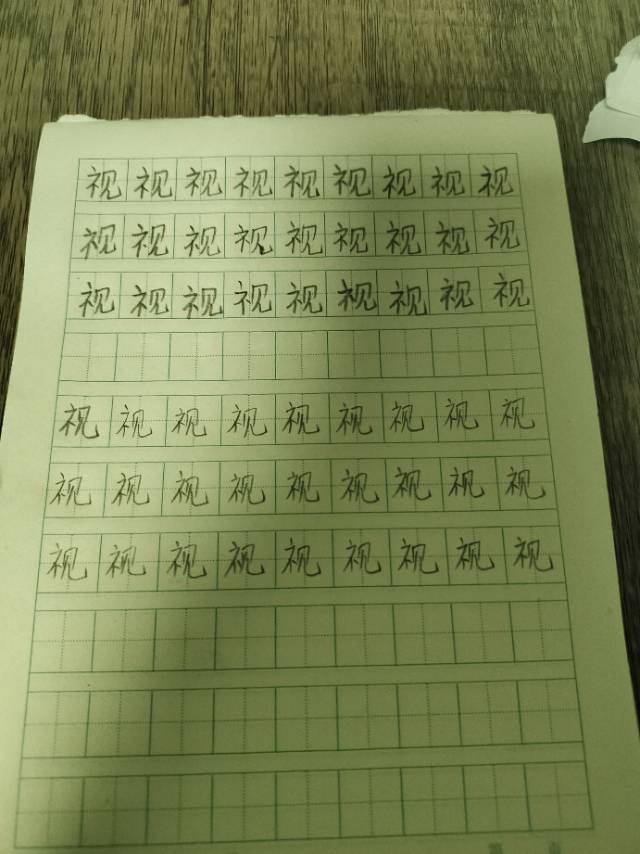 视视视视视视视视视
视视视视视视视视视
视视视视视视视视视
视视视视视视视视视
视视视视视视视视视
视视视视视视视视视